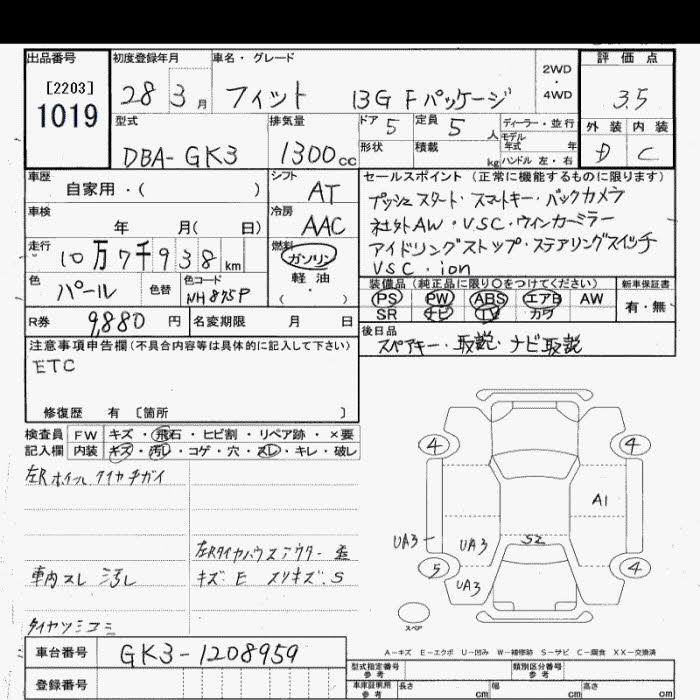 出品番号 初度登録年月 車名・グレード 2WD・4WD 評価点
[2203] 1019 28 3月 フィット 13G Fパッケージ 3.5
型式 排気量 ドア 5 定員 5人 ディーラー・並行 外装 内装
モデル年式 年式
DBA-GK3 1300cc 形状 積載 kg ハンドル 左・右 D C
車歴 シフト セールスポイント(正常に機能するものに限ります)
自家用・( ) AT プッシュスタート・スマートキー・バックカメラ
車検 冷房 社外AW・VSC・ウィンカーミラー
年 月( 日) AAC アイドリングストップ・ステアリングスイッチ
走行 燃料 VSC・ion
10万7千938km ガソリン
軽油
色 色替 色コード 装備品(純正品に限り○をつけてください) 新車保証書
パール NH875P PS PW ABS エアB AW 有・無
SR ナビ TV カワ
R券 9,880円 名変期限 月 日 後日品
スペアキー・取説・ナビ取説
注意事項申告欄(不具合内容等は具体的に記入して下さい)
ETC
修復歴 有 〔箇所 〕
検査員 FW キズ・飛石・ヒビ割・リペア跡・×要
記入欄 内装 キズ・汚レ・コゲ・穴・スレ・キレ・破レ
左Rホイール タイヤチガイ
4 4
A1
UA3 UA3 S2
左Rタイヤハウスアウター
車内スレ 汚レ キズ.E スリキズ.S
5 4
UA3
タイヤツミコミ
スペア
A-キズ E-エクボ U-凹み W-補修跡 S-サビ C-腐食 XX-交換済
車台番号 GK3-1208959
型式指定番号 参考 類別区分番号 参考
登録番号 車庫証明用 参考 長さ cm 幅 cm 高さ cm